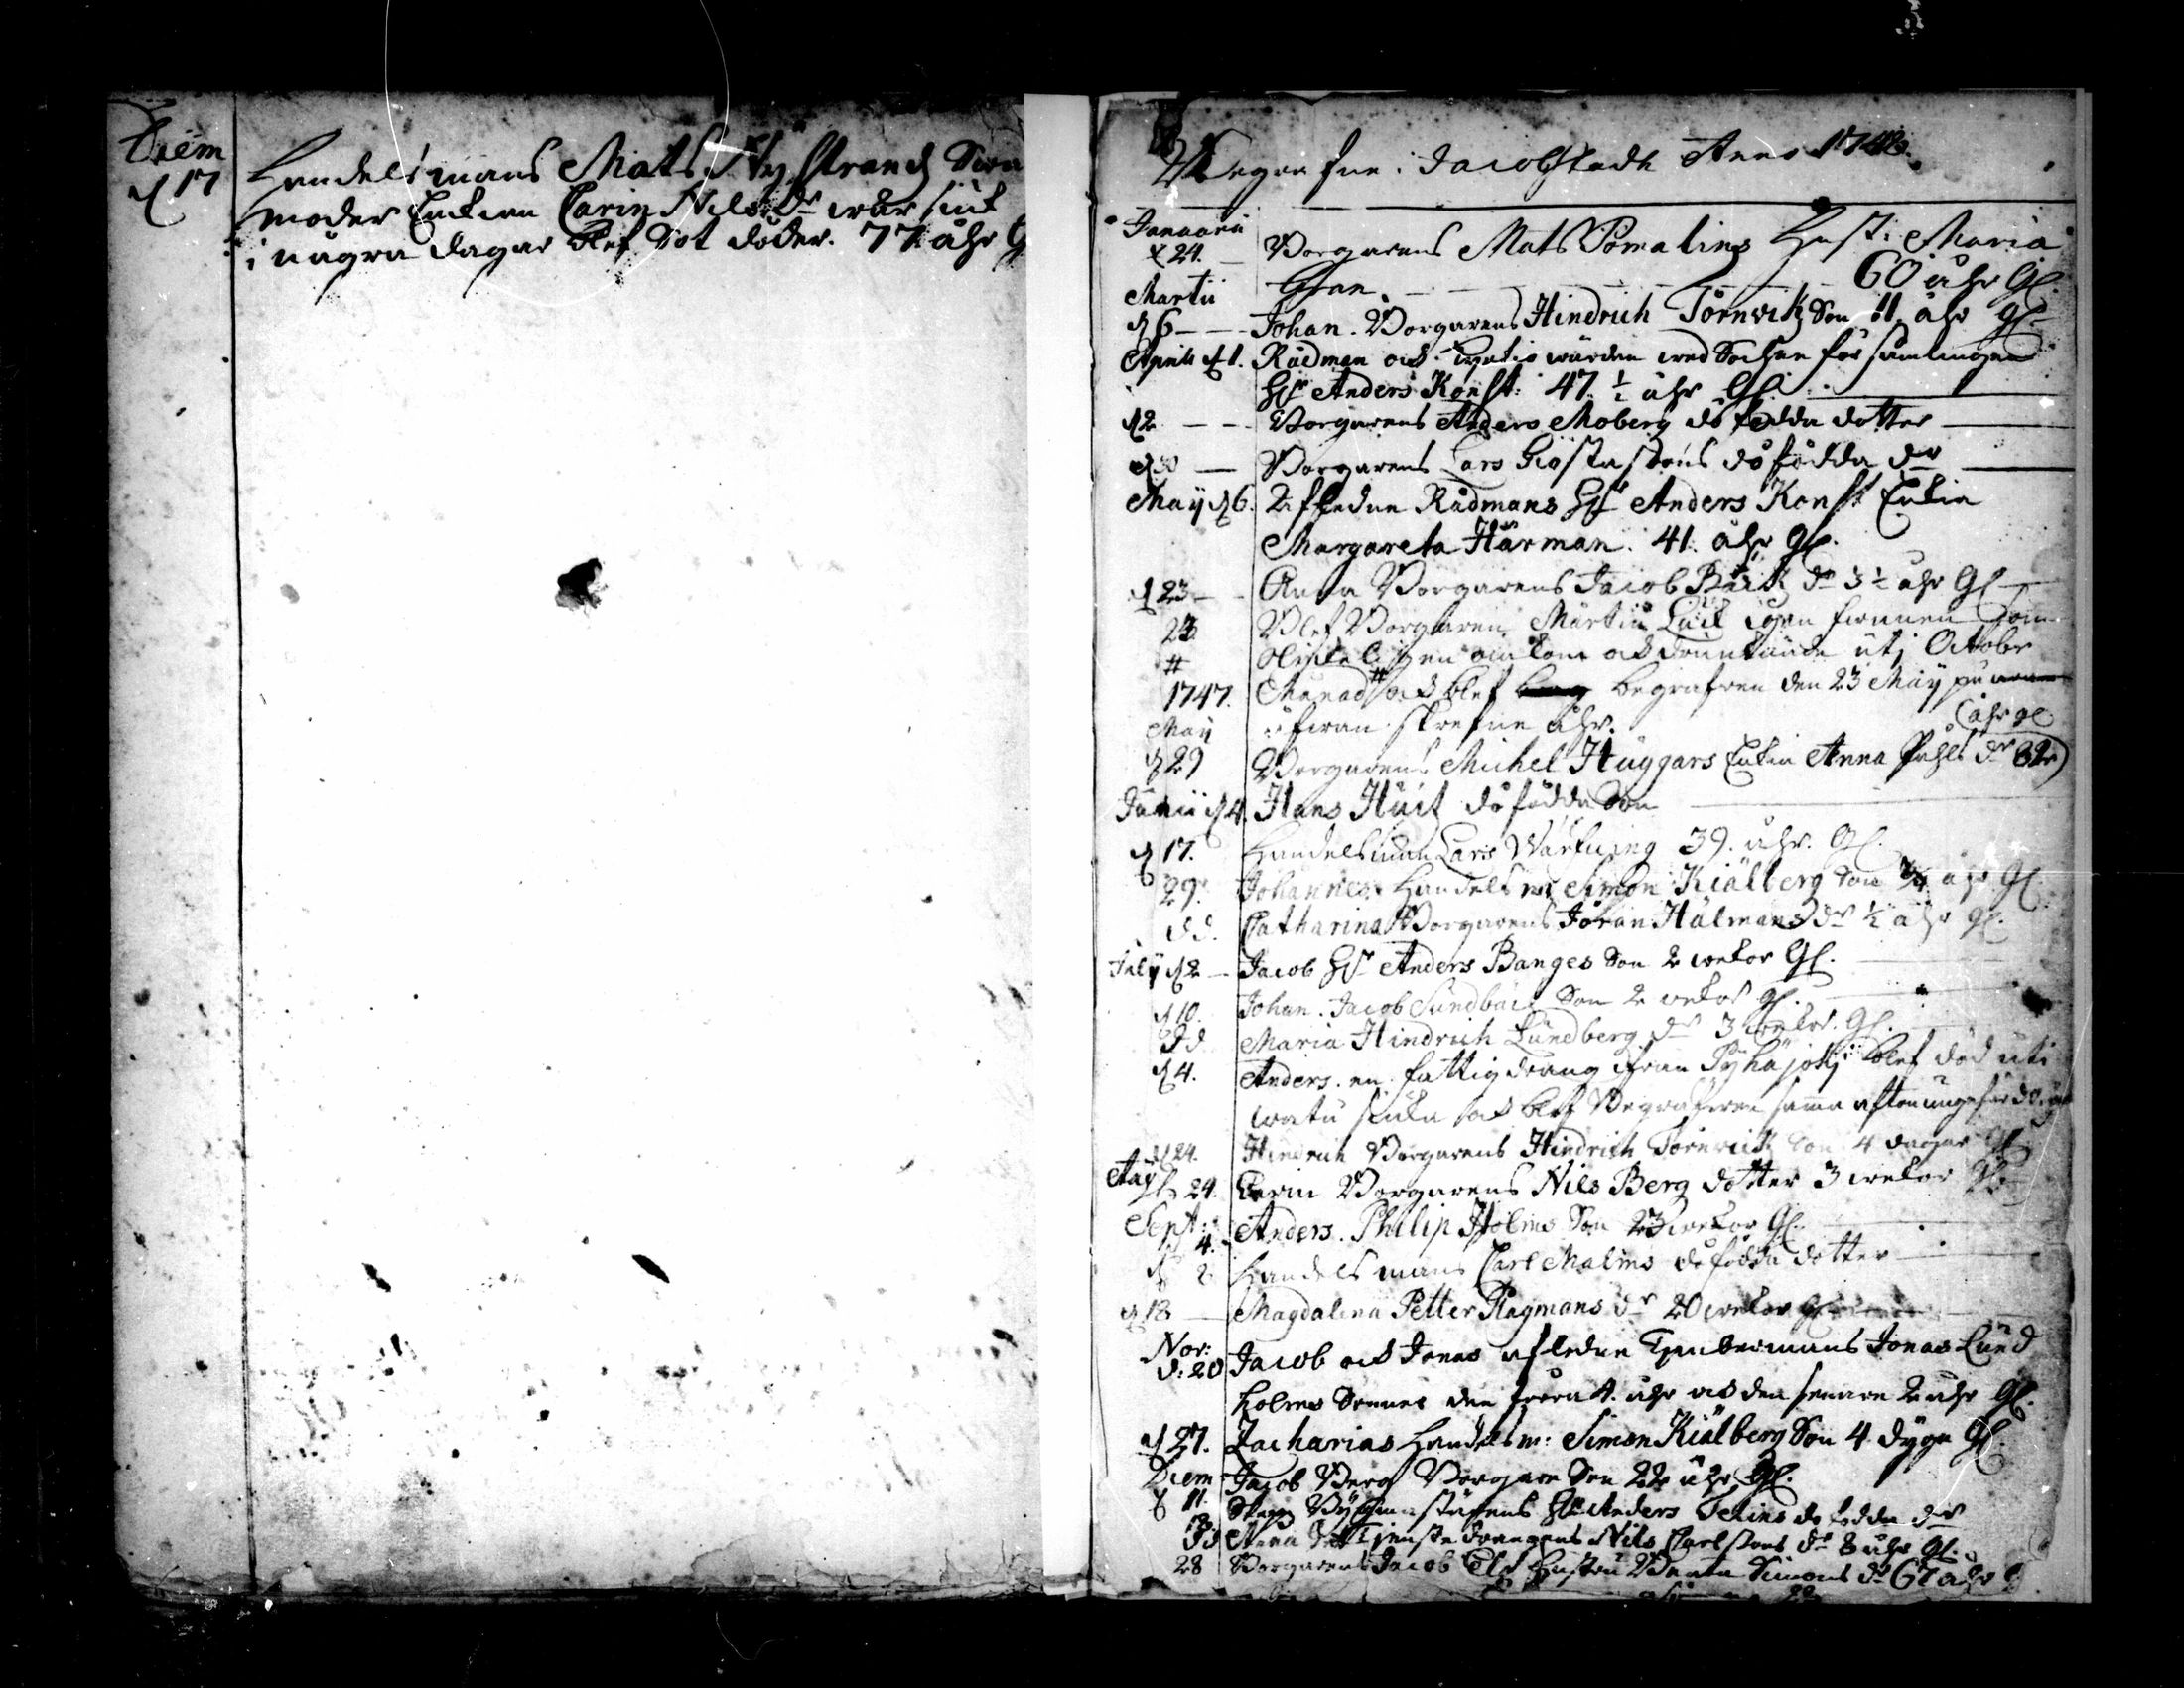 Xbem
d 17
Handelsmans Mats Nystrand Swär
moder Enkian Carin Nils dr war siuk
i några dagar blef Sot döder. 77 åhr G
Begrafne i Jacobstadh Anno 1748.
Januarii
d 24. Borgarens Mats Pomalins Hust: Maria
60 åhr Gl.
Martii
d 6 Johan. Borgarens Hindrich Törnvik Son 11 åhr gl.
Aprill d 1. Rådman och wärden wed Sochne församlingen
Hr Anders Konst: 47 1/2 åhr Gl.
d 2 Borgarens Anders Moberg dödfödda dotter
d 30 Borgarens Lars Giöstassons dödfödda dr
Maÿ d 6. Afledne Rådmans Hr Anders Konst Enkia
Margareta Härman. 41. åhr gl.
d 23 Anna Borgarens Jacob Bäck dr 3 1/2 åhr Gl
23 Blef Borgaren Mårtin igen funnen som
# October
1747. Månad # och blef begrafven den 23 Maÿ
Maÿ skrefne åhr.
åhr gl
d 29 Borgarens Michel Huggars Enkia Anna Påhls dr 82
Junii d 4. Hans Huit dödfödda Son
d 17. Handelsman Lars Wärfwing 39. åhr. Gl.
29. Johannes Handelsm Simon Kiälberg Son 3/4 åhr Gl.
dd. Catharina Borgarens Jöran Hälmans dr 1/2 åhr gl.
Julÿ d 2 Jacob Hr Anders Banges Son 2 wekor Gl.
d 10. Johan. Jacob Sundbäck Son 2 wekor gl.
dd Maria Hindrich Lundberg dr 3 wekor. Gl.
d 4. Anders. en fattig dräng ifrån Pÿhäjoki blef död uti
stufu och blef Begrafven samma afton ungefär 30. åhr
d 24. Hindrich Borgarens Hindrich Törnvick Son 4 dagar Gl
Aug d 24. Carin Borgarens Nils Berg dotter 3 wekor Gl
Sept: 4. Anders. Philip Holms Son 23 wekor Gl.
d 8 Handelsmans Carl Malms dödfödda dotter
d 18 Magdalena Petter Plagmans dr 20 wekor gl
Nov:
d: 20 Jacob och Jonas afledne Timbermans Jonas Lund
holms Sönner den förra 4. åhr och den senare 2 åhr Gl.
d 27. Zacharias Handelsm: Simon Kiälberg Son 4 dygn Gl.
Xbem Jacob Berg Borgare Son 22 åhr Gl.
d 11. Hr Anders dödfödda dr
dd Anna tienste drängens Nils Carlssons dr 8 åhr gl.
28 Borgarens Jacob Hustru Simons dr 67 åhr